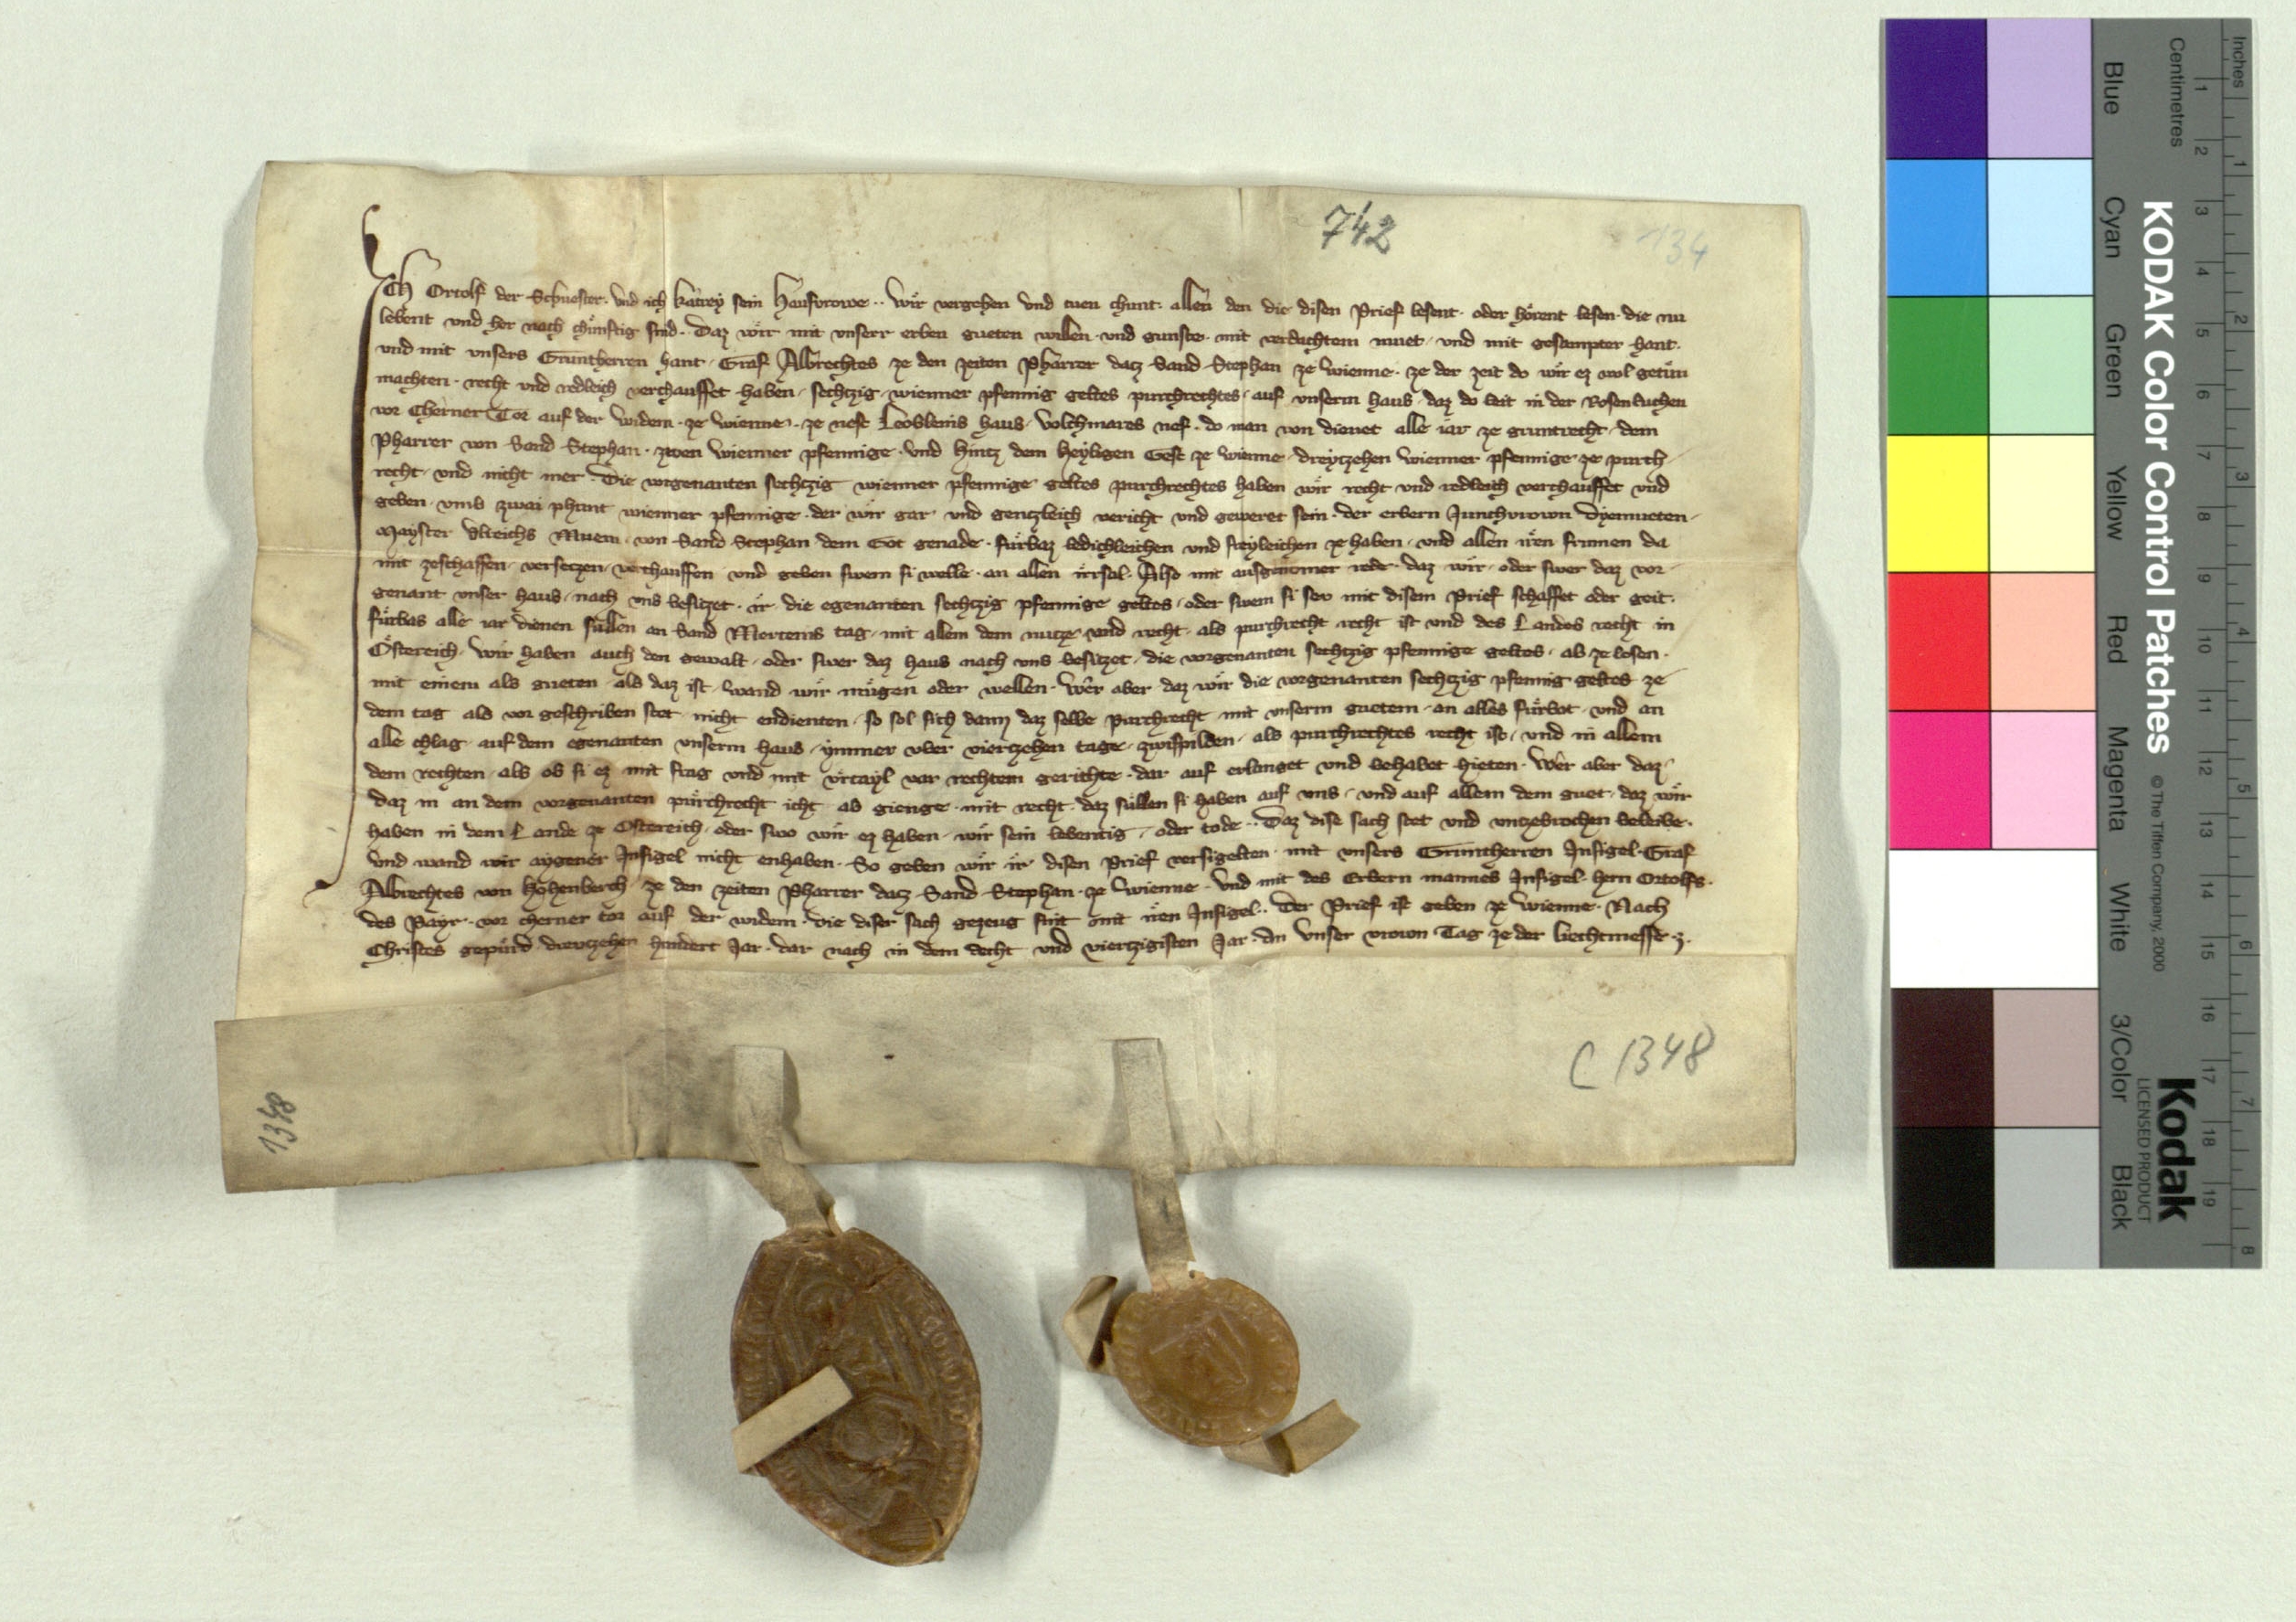 742
134
Ich Ortolf der Schuester · vnd ich katrey sein Hausvrowe ·· Wir vergehen vnd tuen chunt · allen den die disen Prief lesent · oder hörent lesen · die nu
lebent vnd her nach chünftig sind ·· Daz wir mit vnserr erben gueten willen · vnd gunste · mit verdachtem muet · vnd mit gesampter hant ·
vnd mit vnsers Gruntherren hant · Graf Albrechtes ze den zeiten Pharrer datz Sand Stephan ze Wienne · ze der zeit do wir ez wol getün
machten · recht vnd redleich verchauffet haben · sechtzig · wienner pfennig geltes purchrechtes · auf vnserm haus · daz do leit in der Rosenluchen
vor Cherner Tor auf der widem · ze Wienne · ze nest Leoblems haus · Volchmares nef · do man von dienet alle iar ze gruntrecht · dem
Pharrer von Sand Stephan · zwen Wienner pfennige · vnd hintz dem heyligen Gest ze Wienne · dreytzehen Wienner pfennige ze purch
recht · vnd nicht mer · Die vorgenanten sechtzig wienner pfennige geltes purchrechtes haben wir recht vnd redleich verchauffet vnd
geben · vmb zwai phunt wienner pfennige · der wir gar vnd gentzleich vericht vnd gewert sein · der erbern Junchvrown Dyemueten
Mayster Vlreichs Muem · von Sand Stephan dem Got genade · fürbaz ledichleichen vnd freyleichen ze haben · vnd allen irn frumen da
mit zeschaffen · versetzen · verchauffen vnd geben swem si welle · an allen irrsal · Also mit ausgenomer rede · daz wir · oder swer daz vor
genant vnser haus · nach vns besitzet · ir die egenanten sechtzig pfennige geltes · oder swem si sev mit disem Prief schaffet oder geit ·
fürbas alle iar dienen süllen an Sand Mertens tag · mit allem dem nutze vnd recht · als purchrecht recht ist vnd des Landes recht in
Östereich · Wir haben auch den gewalt · oder swer daz haus nach vns besitzet · die vorgenanten sechtzig pfennige geltes · ab ze lösen ·
mit einem als gueten als daz ist · wand wir mügen oder wellen · Wêr aber daz wir die vorgenanten sechtzig pfennig geltes ze
dem tag als vor geschriben stet nicht endienten · so sol sich dann daz selbe purchrecht mit vnserm guetem · an alles fürbot · vnd an
alle chlag · auf dem egenanten vnserm haus · ymmer vber viertzehen tage · zwispilden · als purchrechtes recht ist · vnd in allem
dem rechten · als ob si ez mit frag vnd mit vrtayl vor rechtem gerichte · dar auf erlanget vnd behabet hieten · Wêr aber daz
daz in an dem vorgenanten purchrecht icht ab gienge · mit recht · daz süllen si haben auf vns · vnd auf allem dem guet · daz wir
haben in dem Lande ze Ostereich · oder swo wir ez haben · wir sein lebentig · oder tode ·· Daz dise sach stet vnd vntzebrochen beleibe ·
vnd wand wir aygener Insigel nicht enhaben · So geben wir ir disen Prief versigelten · mit vnsers Gruntherren Insigel · Graf
Albrechtes von Hohenberch · ze den zeiten Pharrer datz Sand Stephan · ze Wienne · vnd mit des Erbern mannes Insigel · hern Ortolfs ·
des Payr · vor cherner tor auf der widem · die diser sach gezeug sint mit irn Insigel ·· Der Prief ist geben ze Wienne · Nach
Christes gepürd drevtzehen hundert Jar · dar nach in dem Echt vnd viertzigisten Jar · An Vnser vrown Tag ze der Liechtmesse ·
C 1348
1348
KODAK Color Control Patches © The Tiffen Company, 2000
Kodak
LICENSED PRODUCT
Blue Cyan Green Yellow Red Magenta White 3/Color Black
Inches 1 2 3 4 5 6 7 8
Centimetres 1 2 3 4 5 6 7 8 9 10 11 12 13 14 15 16 17 18 19